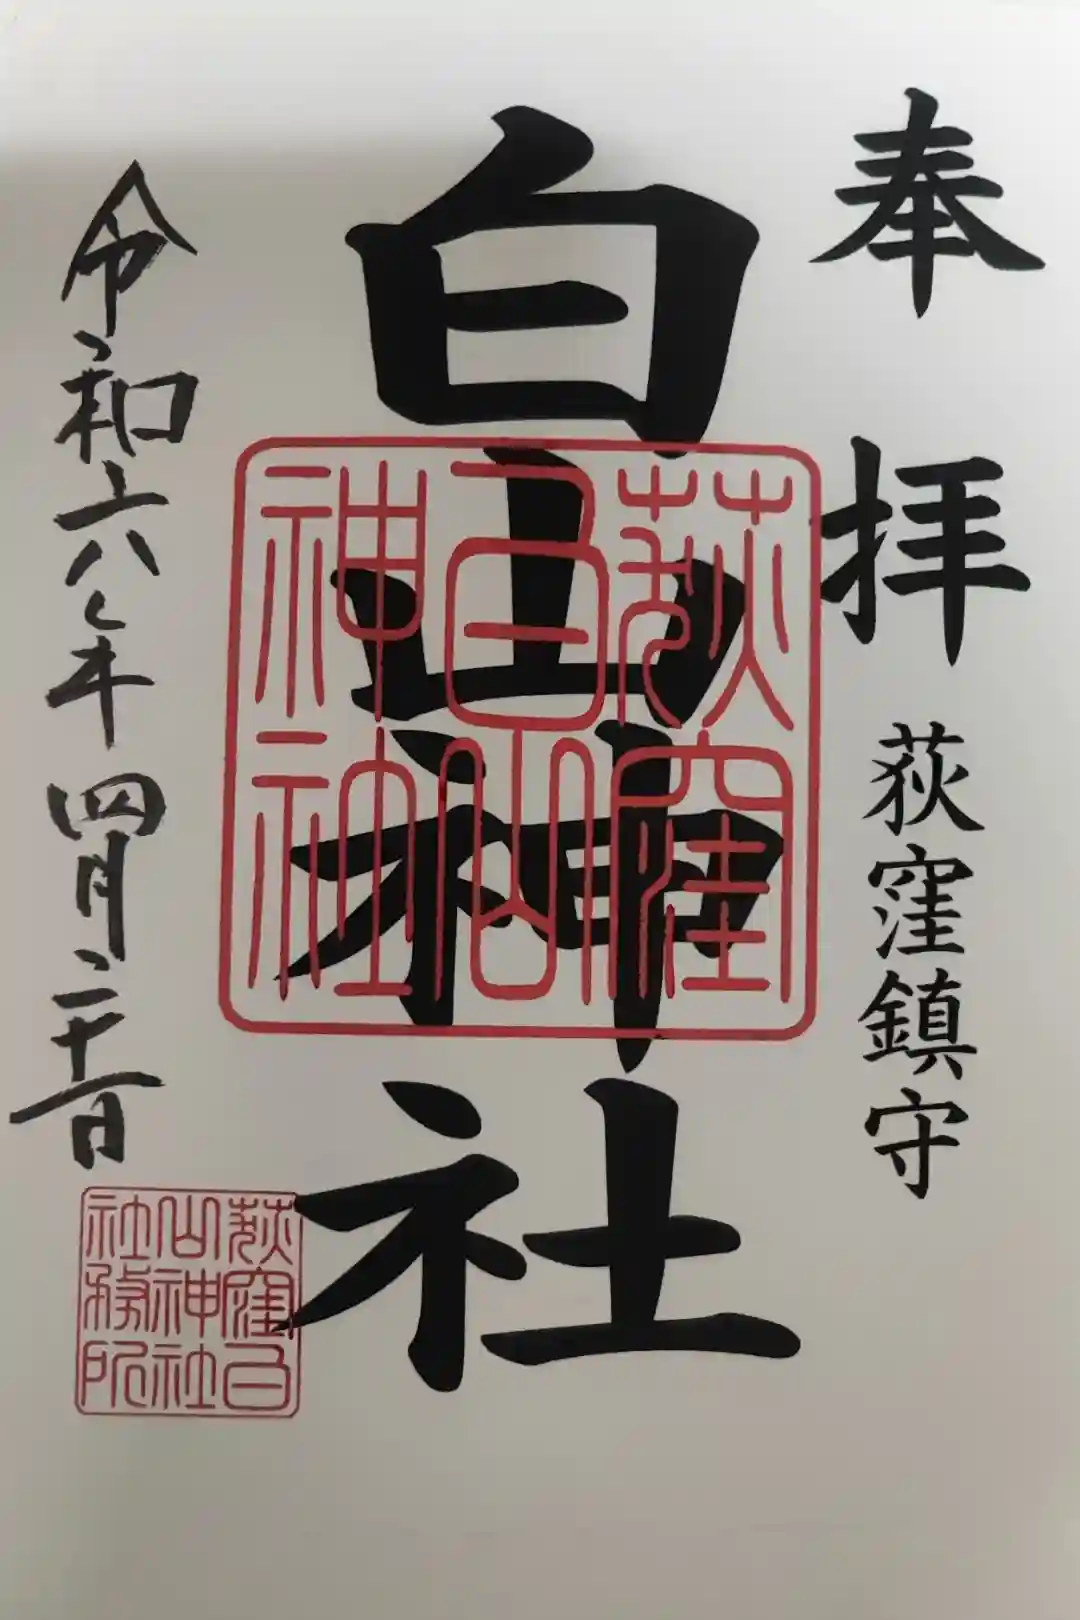 奉拝
荻窪鎮守
白山神社
荻窪
白山
神社
令和六年四月二十日
荻窪白
山神社
社務所